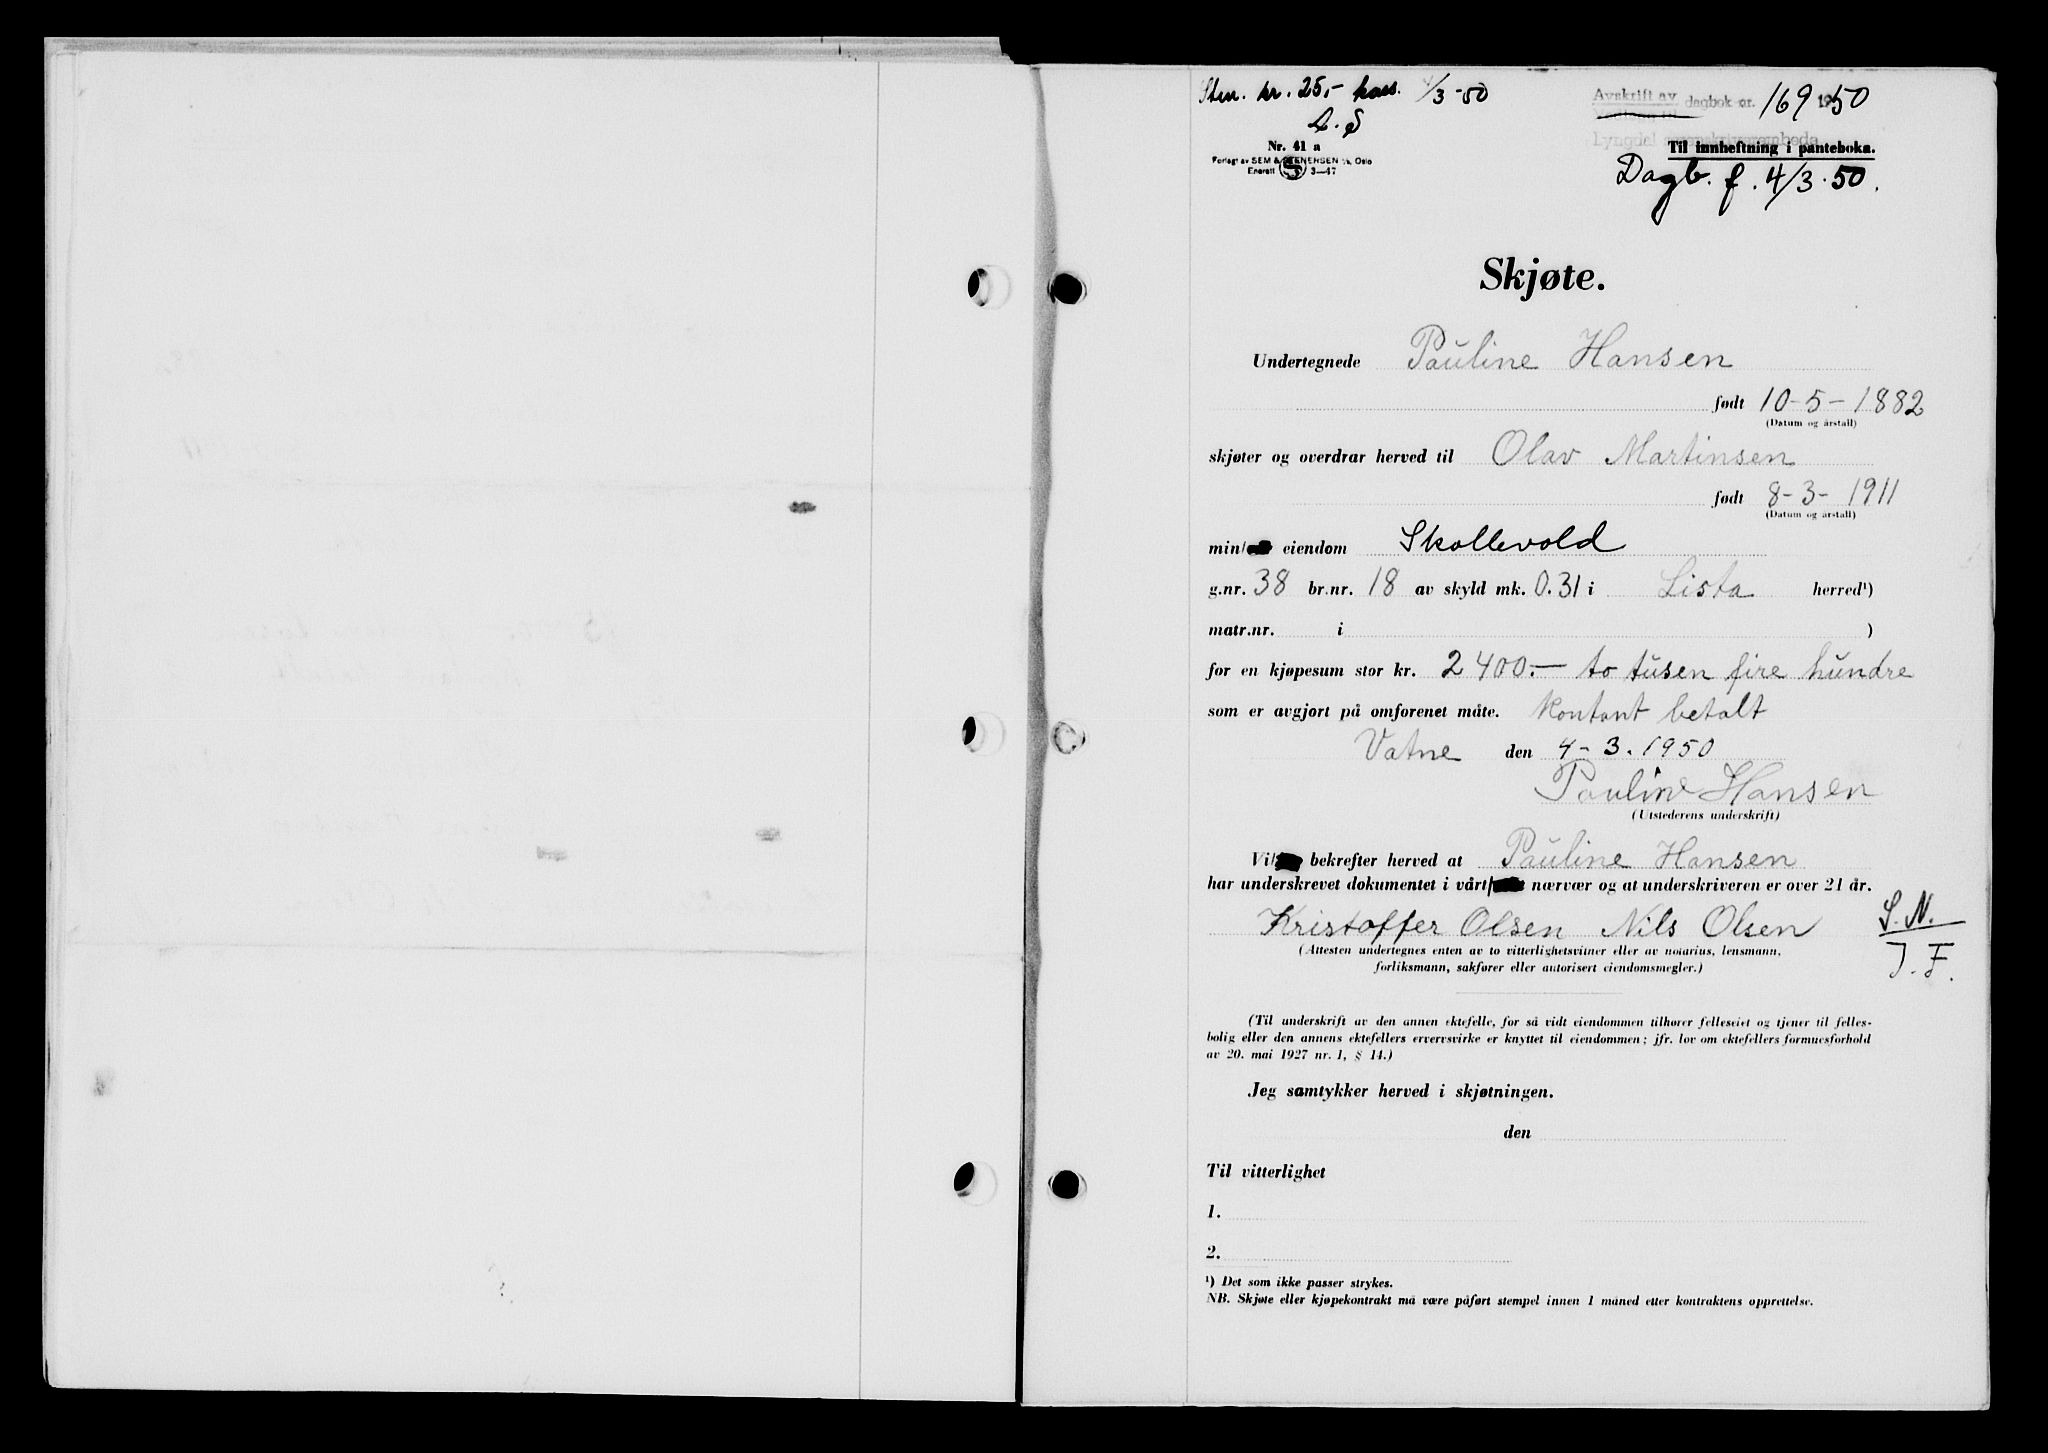 Stem. kr. 25,- kass. 4/3-50
Avskrift av dagbok nr. 169 1950
Lyngdal sorenskriverembede
Nr. 41 a
Forlagt av SEM & STENERSEN A/S, Oslo
Enerett S 3—47
Til innheftning i panteboka.
Dagb. f. 4/3.50.
Skjøte.
Undertegnede Pauline Hansen
født 10-5-1882
(Datum og årstall)
skjøter og overdrar herved til Olav Martinsen
født 8-3-1911
(Datum og årstall)
min/ eiendom Skollevold
g.nr. 38 br.nr. 18 av skyld mk. 0.31 i Lista herred¹)
matr.nr. i )
for en kjøpesum stor kr. 2400.— to tusen fire hundre
som er avgjort på omforenet måte. kontant betalt
Vatne den 4-3.1950
Pauline Hansen
(Utstederens underskrift)
Vi/ bekrefter herved at Pauline Hansen
har underskrevet dokumentet i vårt/ nærvær og at underskriveren er over 21 år.
Kristoffer Olsen Nils Olsen
S.N.
J.F.
(Attesten undertegnes enten av to vitterlighetsvitner eller av notarius, lensmann,
forliksmann, sakfører eller autorisert eiendomsmegler.)
(Til underskrift av den annen ektefelle, for så vidt eiendommen tilhører felleseiet og tjener til felles-
bolig eller den annens ektefellers ervervsvirke er knyttet til eiendommen; jfr. lov om ektefellers formuesforhold
av 20. mai 1927 nr. 1, § 14.)
Jeg samtykker herved i skjøtningen.
den
Til vitterlighet
1.
2.
¹) Det som ikke passer strykes.
NB. Skjøte eller kjøpekontrakt må være påført stempel innen 1 måned etter kontraktens opprettelse.